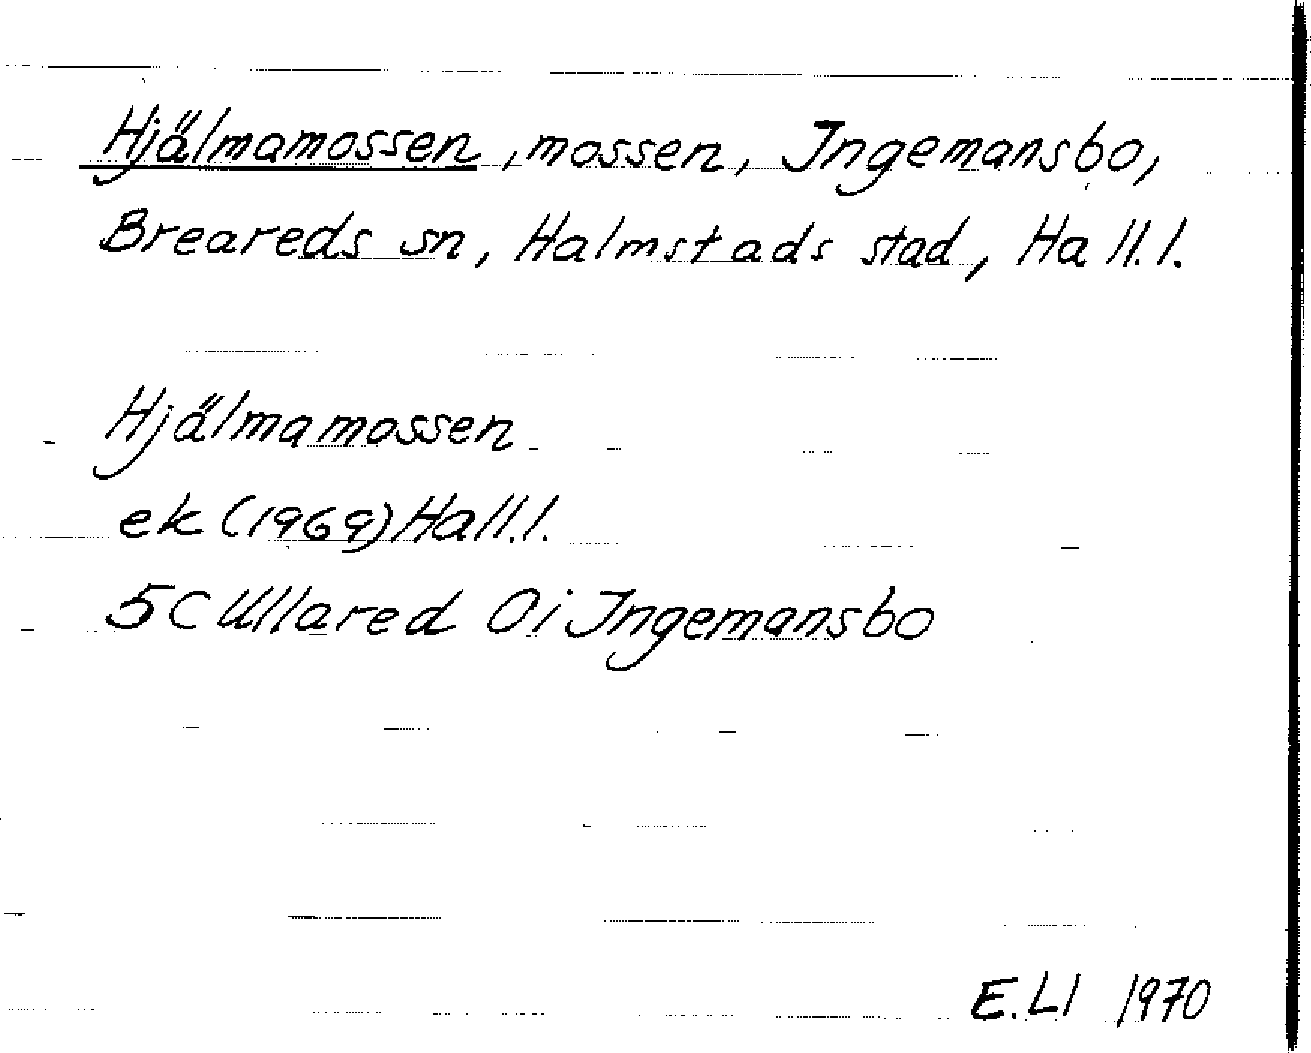 Hjälmamossen, mossen, Ingemansbo,
Breareds sn, Halmstads stad, Hall.l.
Hjälmamossen
ek (1969) Hall.l.
5C Ullared Oi Ingemansbo
E.Ll 1970